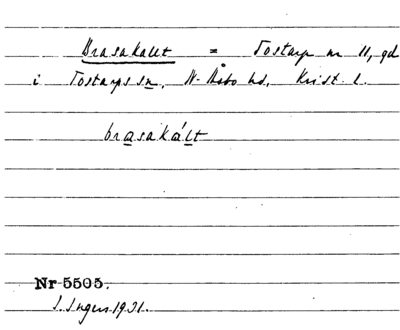 Brasakallt = Tostarp nr 11, gd
i Tostarps sn, N. Åsbo hd, Krist. l.
brasakált
Nr 5505.
I. Ingers 1931.